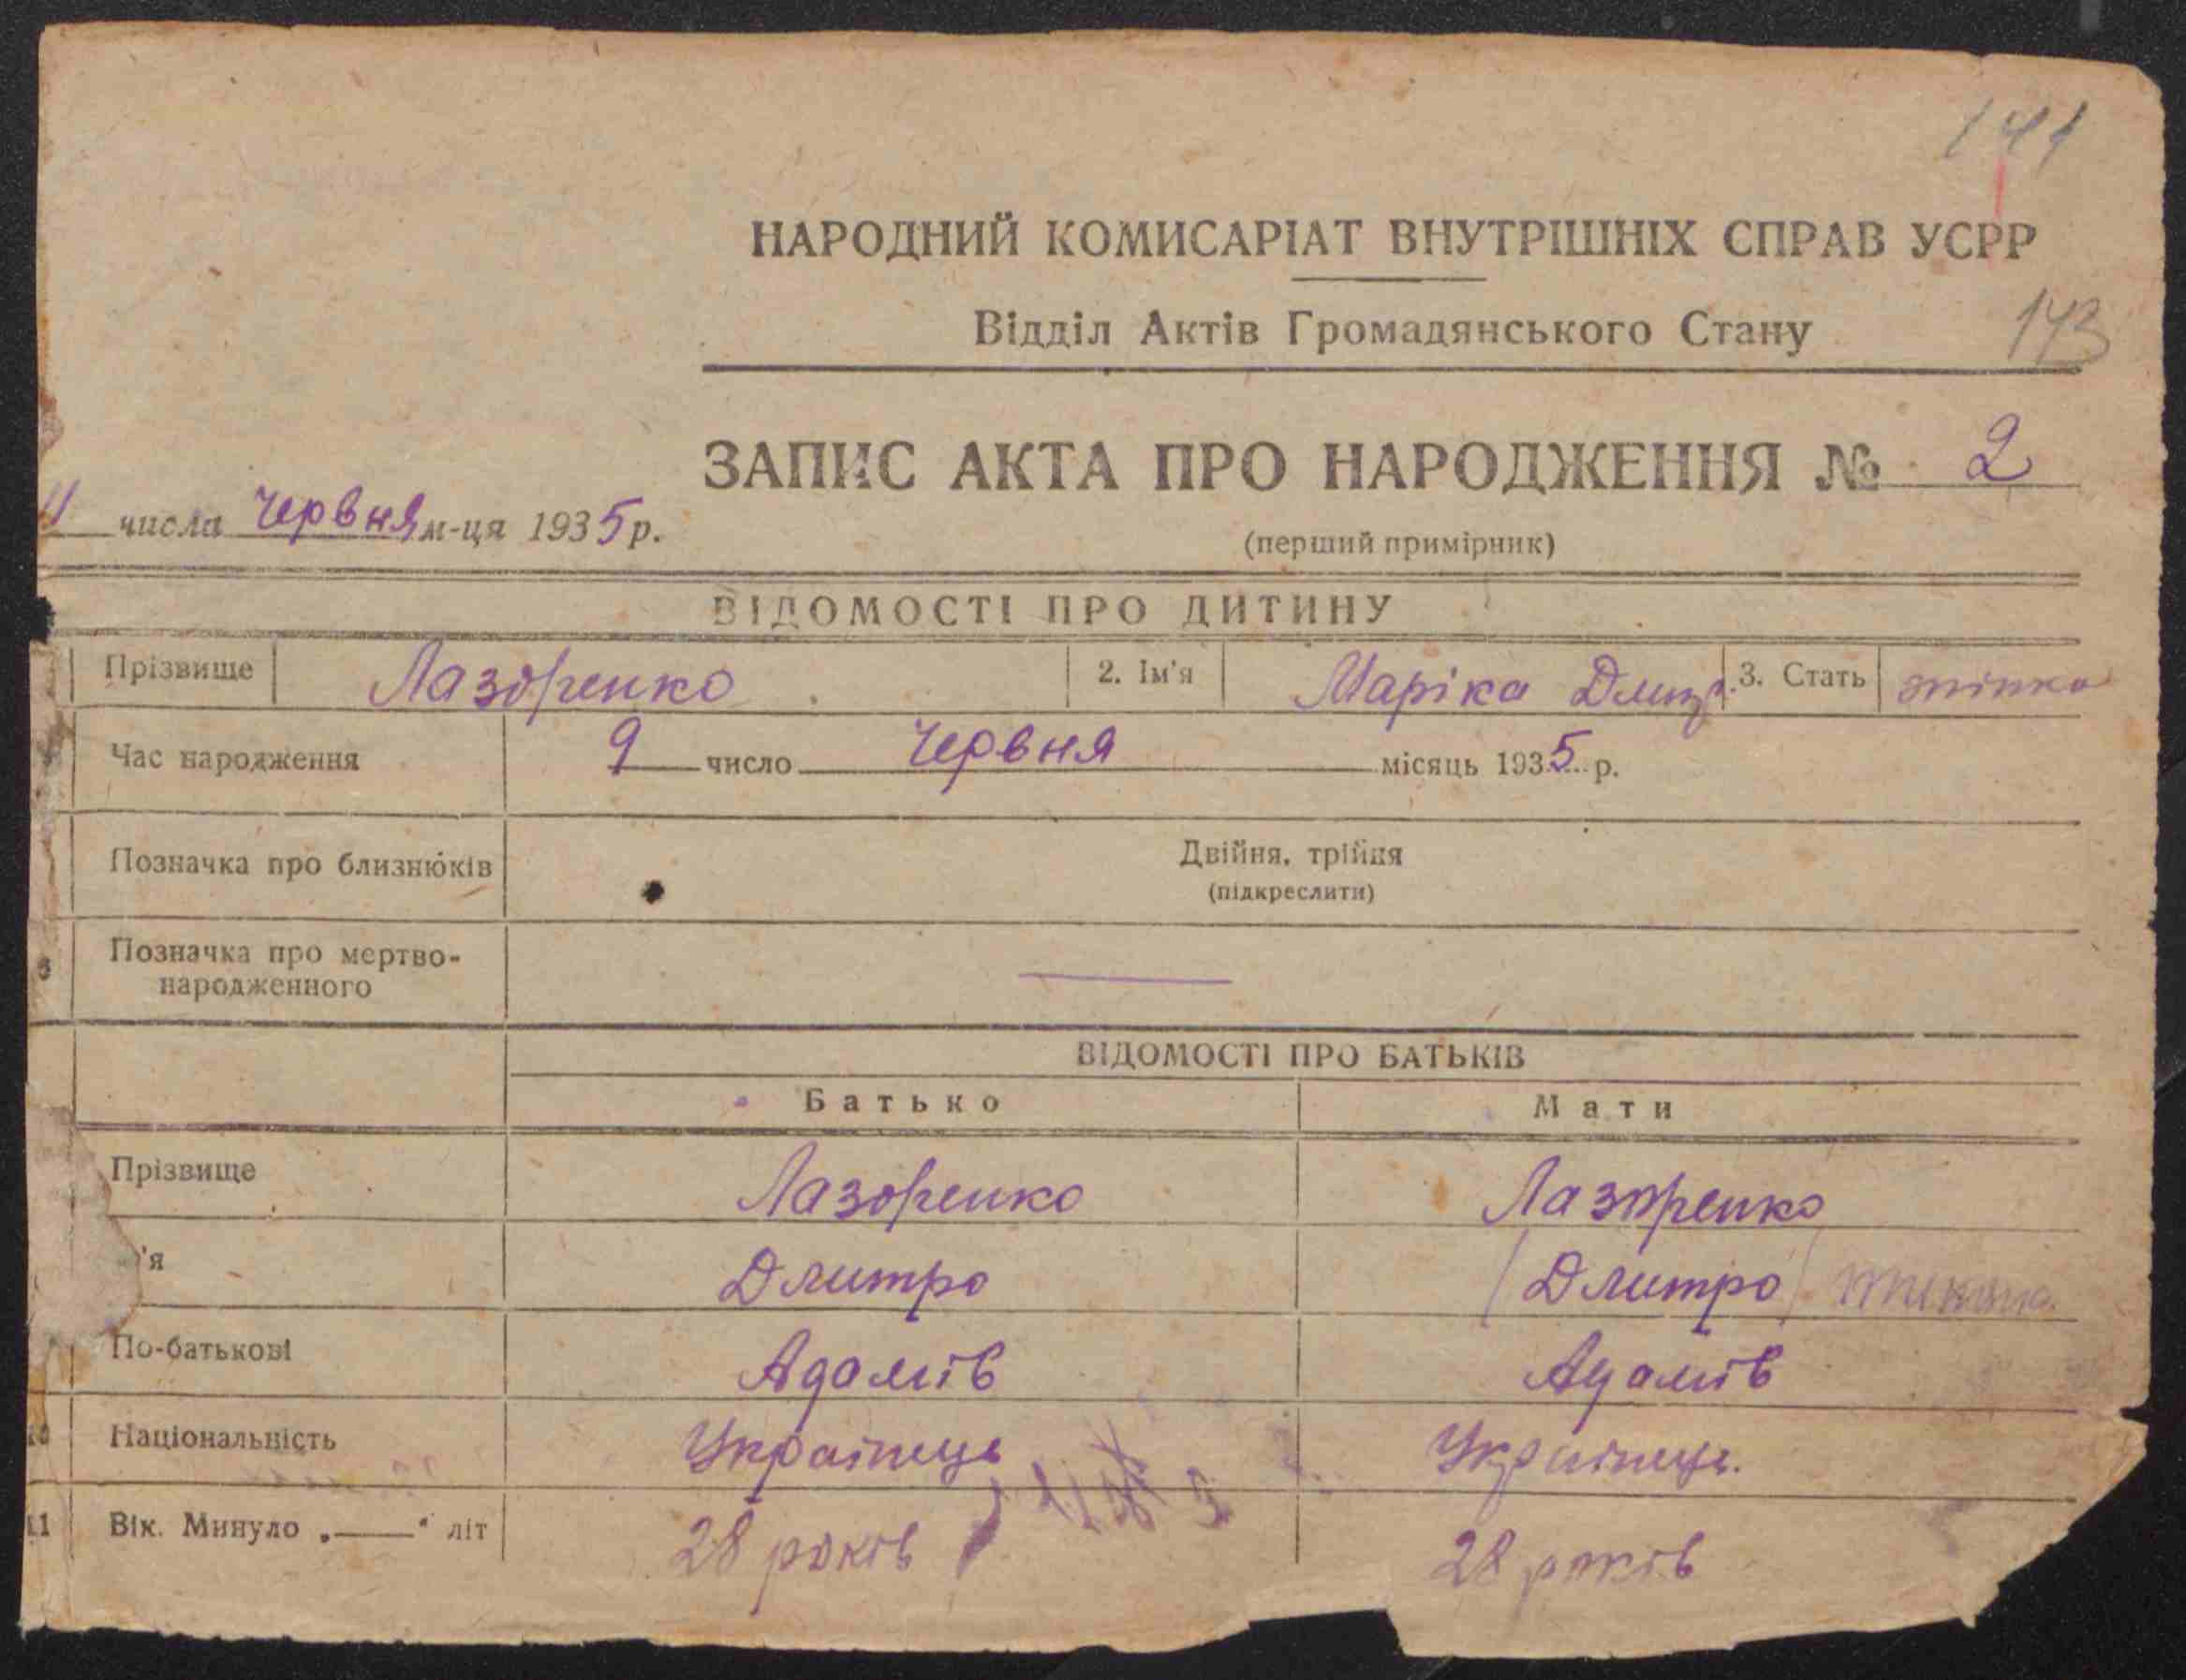 141
НАРОДНИЙ КОМИСАРІАТ ВНУТРІШНІХ СПРАВ УСРР
Відділ Актів Громадянського Стану
143
ЗАПИС АКТА ПРО НАРОДЖЕННЯ № 2
числа червня м-ця 1935 р.
(перший примірник)
ВІДОМОСТІ ПРО ДИТИНУ
Прізвище Лазоренко 2. Ім'я Маріка Дмитр. 3. Стать жінка
Час народження 9 число червня місяць 1935 р.
Позначка про близнюків Двійня, трійня
(підкреслити)
Позначка про мертво-
народженного
ВІДОМОСТІ ПРО БАТЬКІВ
Батько Мати
Прізвище Лазоренко Лазоренко
'я Дмитро (Дмитро)
По-батькові Адамів Адамів
10 Національність Українець Українець.
11 Вік. Минуло „——“ літ 28 років 28 років